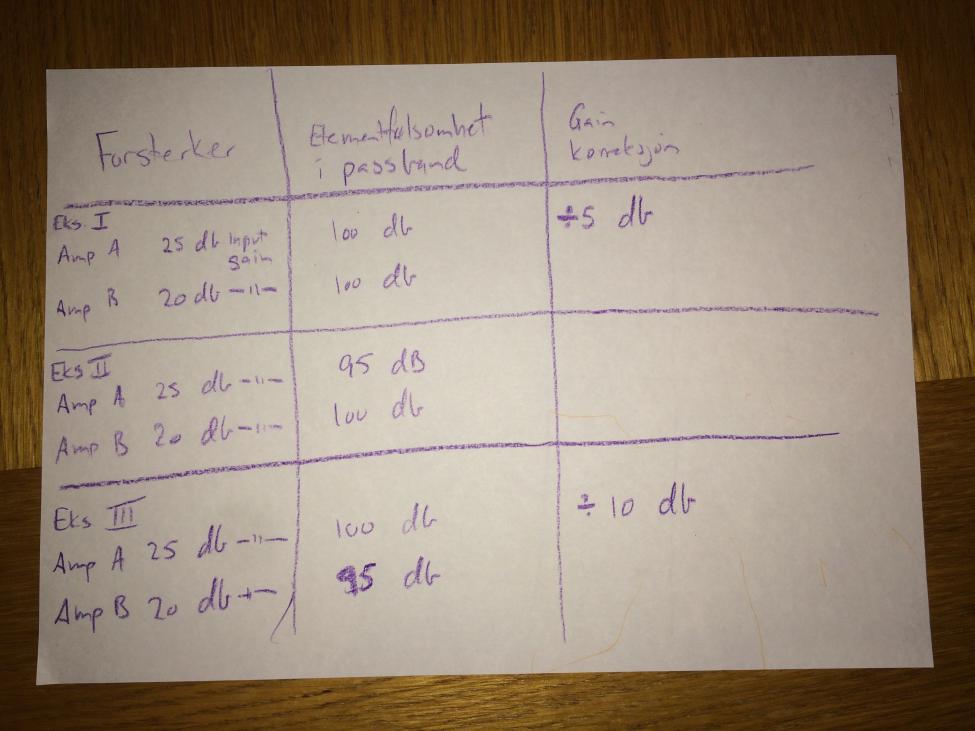 Forsterker
Elementfølsomhet
i passbånd
Gain
korreksjon
Eks I
Amp A 25 db input gain
100 db
÷5 db
Amp B 20 db -"-
100 db
Eks II
Amp A 25 db -"-
95 dB
Amp B 20 db -"-
100 db
Eks III
Amp A 25 db -"-
100 db
÷ 10 db
Amp B 20 db -"-
95 db